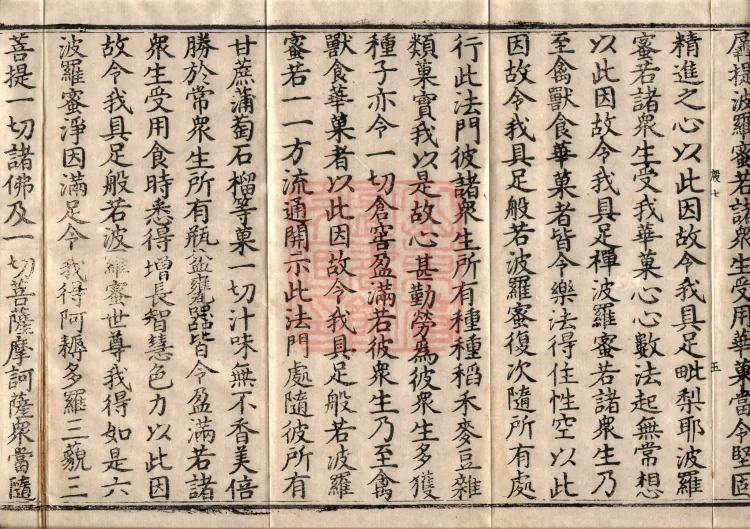 羼提波羅蜜若諸衆生受用華菓當令堅固
七 五
精進之心以此因故令我具足毗梨耶波羅
蜜若諸衆生受我華菓心心數法起無常想
以此因故令我具足禪波羅蜜若諸衆生乃
至禽獸食華菓者皆令樂法得住性空以此
因故令我具足般若波羅蜜復次隨所有處
行此法門彼諸衆生所有種種稻禾麥豆雜
類菓實我以是故心甚勤勞爲彼衆生多獲
種子亦令一切倉窖盈滿若彼衆生乃至禽
獸食華菓者以此因故令我具足般若波羅
蜜若一一方流通開示此法門處隨彼所有
甘蔗蒲萄石榴等菓一切汁味無不香美倍
勝於常衆生所有瓶盆甕器皆令盈滿若諸
衆生受用食時悉得增長智慧色力以此因
故令我具足般若波羅蜜世尊我得如是六
波羅蜜淨因滿足令我得阿耨多羅三藐三
菩提一切諸佛及一切菩薩摩訶薩衆當隨